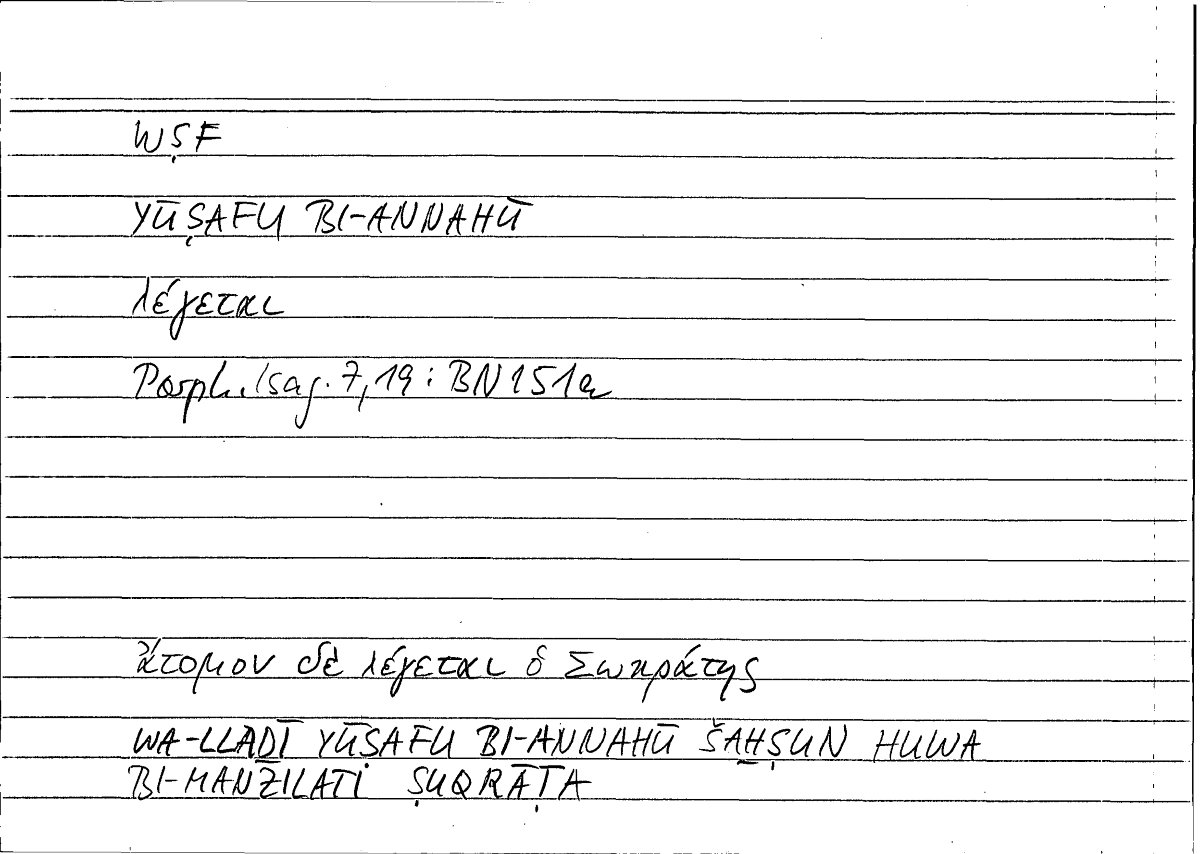 WṢF
YŪṢAFU BI-ANNAHŪ
λέγεται
Porph. Isag. 7,19 : BN 151a
ἄτομον δὲ λέγεται ὁ Σωκράτης
WA-LLAḎĪ YŪṢAFU BI-ANNAHŪ ŠAḪṢUN HUWA
BI-MANŽILATI ṢUQRĀṬA